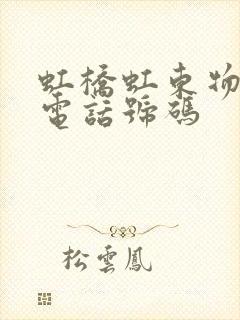 虹橋虹東物
電話號碼
松雲鳳